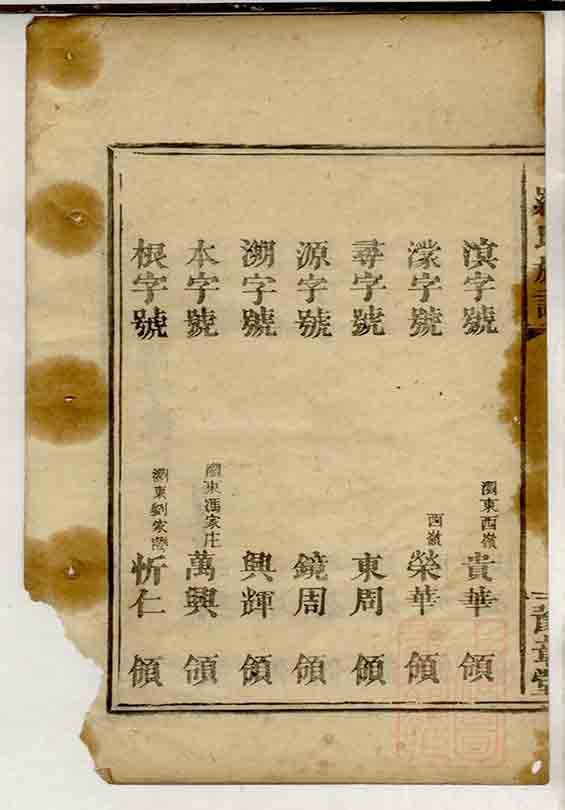 溟字號 瀏東西嶺 貴華 領
濛字號 西嶺 榮華 領
尋字號 東周 領
源字號 鏡周 領
溯字號 興輝 領
本字號 瀏東馮家庄 萬興 領
根字號 瀏東劉家灣 忻仁 領
豫章堂